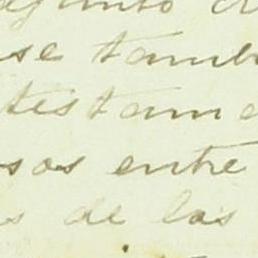 se tamb
testam
sos entre
s de los